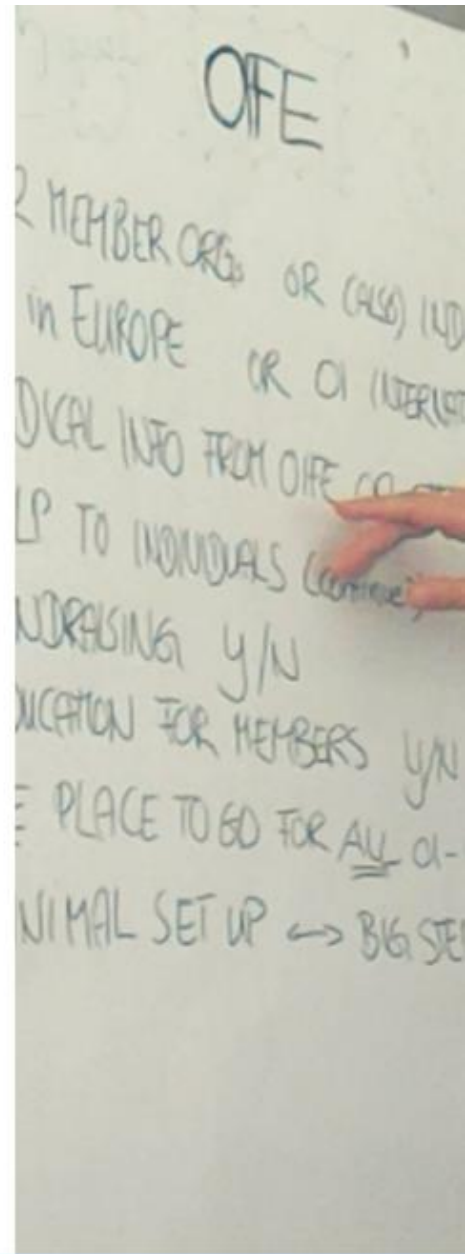 OIFE
R MEMBER ORGs OR (ALSO) IND
in EUROPE OR OI INTERNAT
DICAL INFO FROM OIFE
LP TO INDIVIDUALS (continue)
NDRAISING Y/N
UCATION FOR MEMBERS Y/N
E PLACE TO GO FOR ALL OI-
NIMAL SET UP ↔ BIG STE